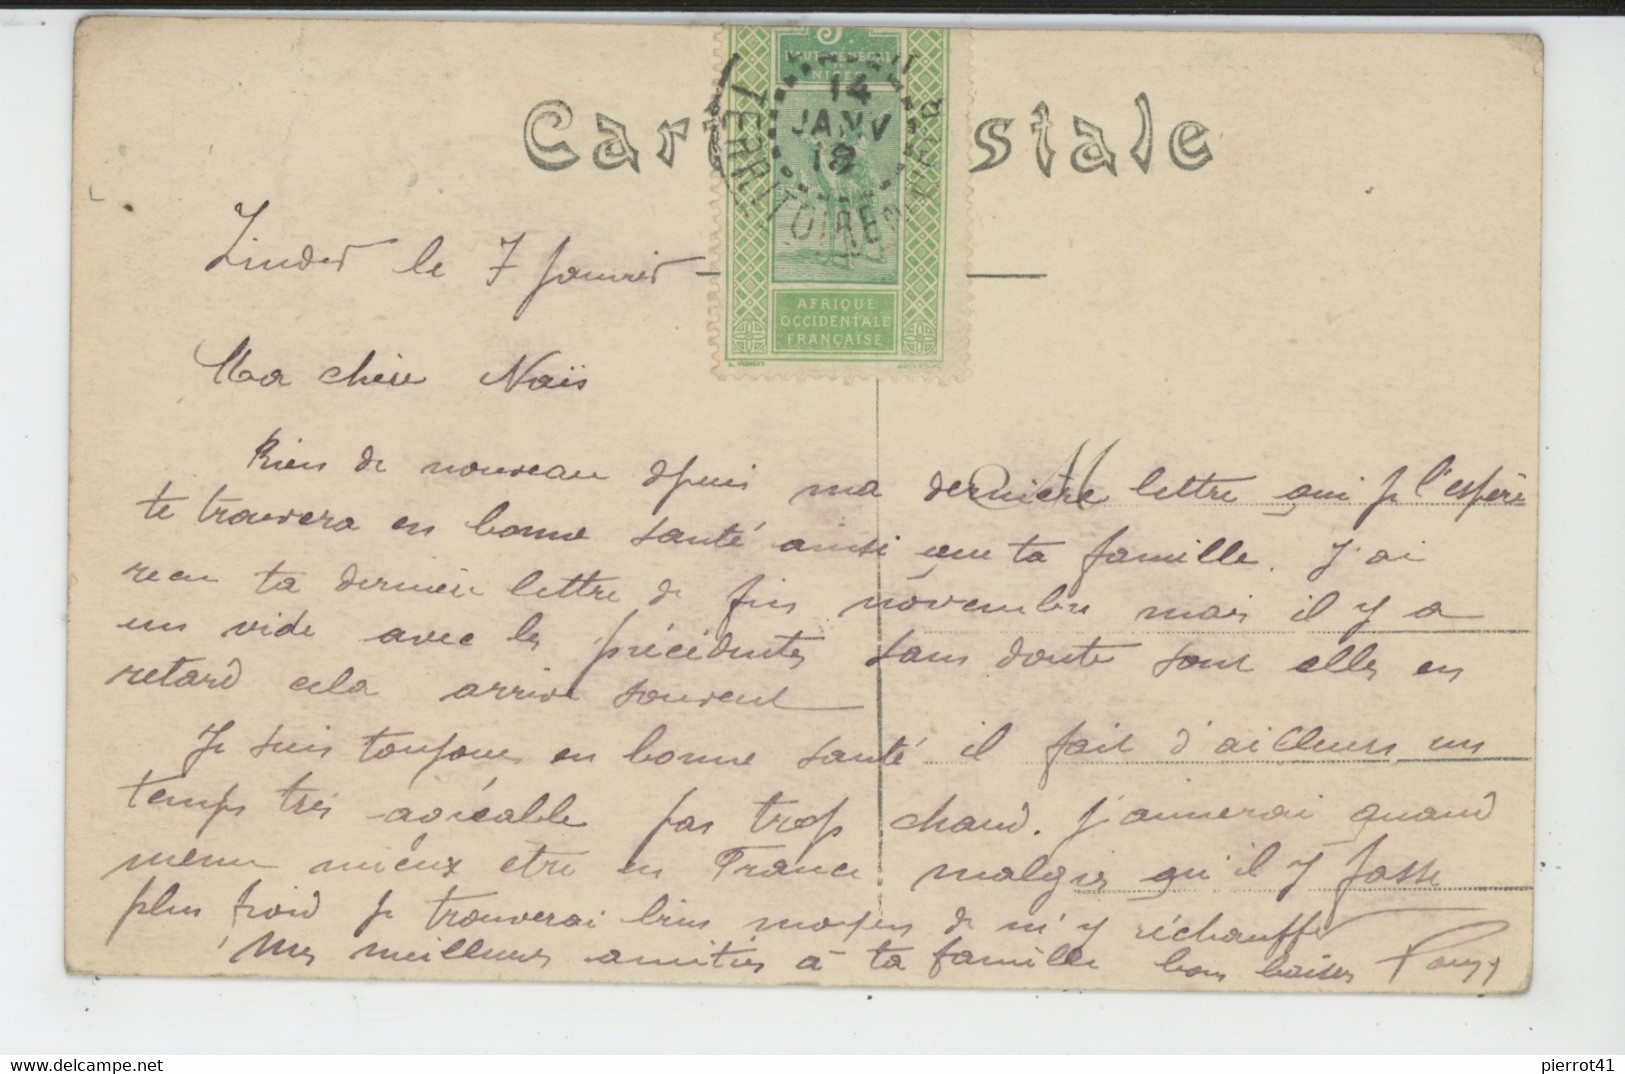 Carte Postale
HAUT-SÉNÉGAL
NIGER
14
JANV
18
TERRITOIRE
AFRIQUE
OCCIDENTALE
FRANÇAISE
Zinder le 7 Janvier
Ma chère Naïs
Rien de nouveau depuis ma dernière lettre qui je l'espère
te trouvera en bonne santé ainsi que ta famille. J'ai
reçu ta dernière lettre de fin novembre mais il y a
un vide avec les précédentes sans doute sont elles en
retard cela arrive souvent
Je suis toujours en bonne santé il fait d'ailleurs un
temps très agréable pas trop chaud. J'aimerai quand
meme mieux etre en France malgré qu'il y fasse
plus froid je trouverai bien moyen de m'y réchauffer
Mes meilleures amitiés à ta famille bons baisers
pierrot41